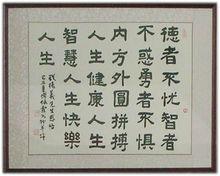 德者不忧智者
不惑勇者不惧
内方外圓拼搏
人生健康人生
智慧人生快樂
人生